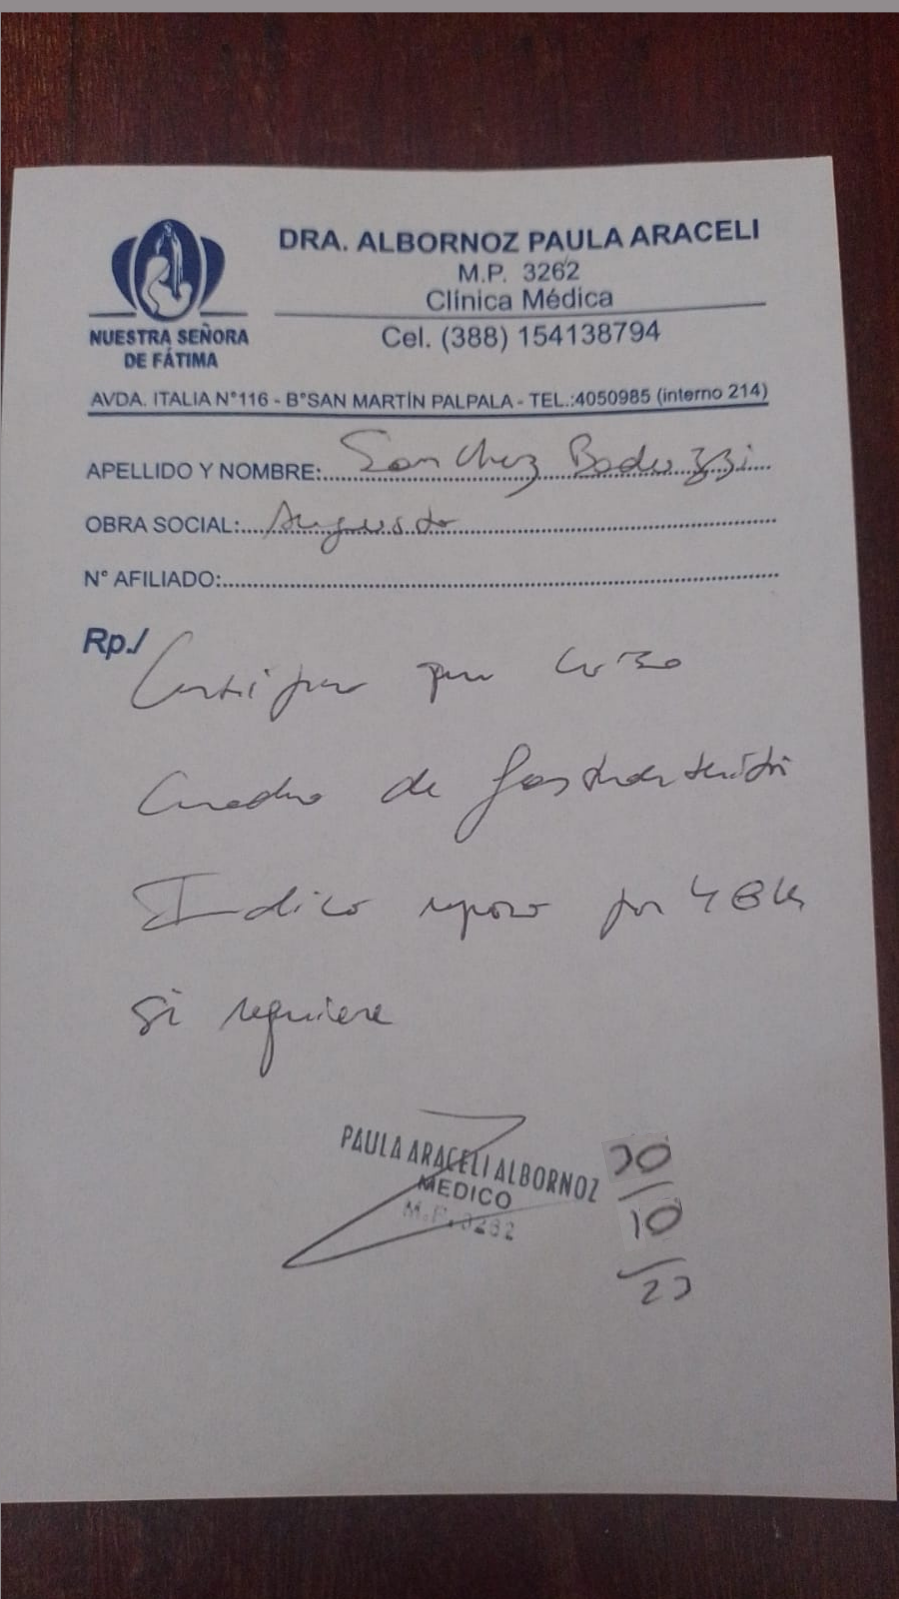 DRA. ALBORNOZ PAULA ARACELI
M.P. 3262
Clínica Médica
Cel. (388) 154138794
NUESTRA SEÑORA
DE FÁTIMA
AVDA. ITALIA N°116 - B°SAN MARTÍN PALPALA - TEL.:4050985 (interno 214)
APELLIDO Y NOMBRE: Sanchez
OBRA SOCIAL: Augusto
N° AFILIADO:
Rp./ Certifico que curso
Cuadro de gastroenteritis
Indico reposo por 48hs
si requiere
PAULA ARACELI ALBORNOZ
MEDICO
M.P. 3262
30
/10
/23